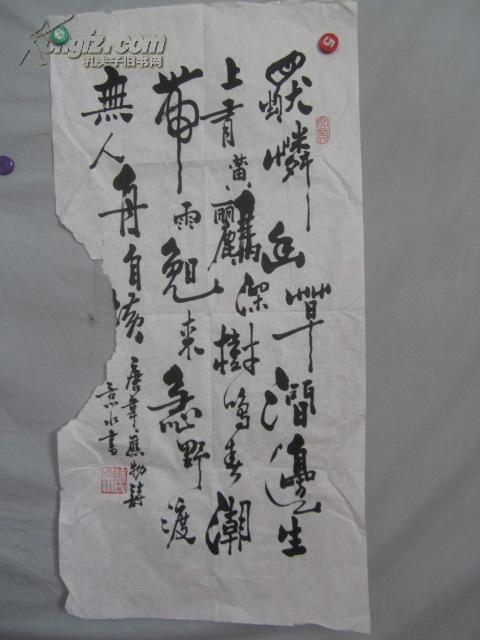 獨憐幽草澗邊生
上有黃鸝深樹鳴春潮
帶雨晚來急野渡
無人舟自橫
唐韋應物詩
水書
Kongfz.com
孔夫子旧书网
5